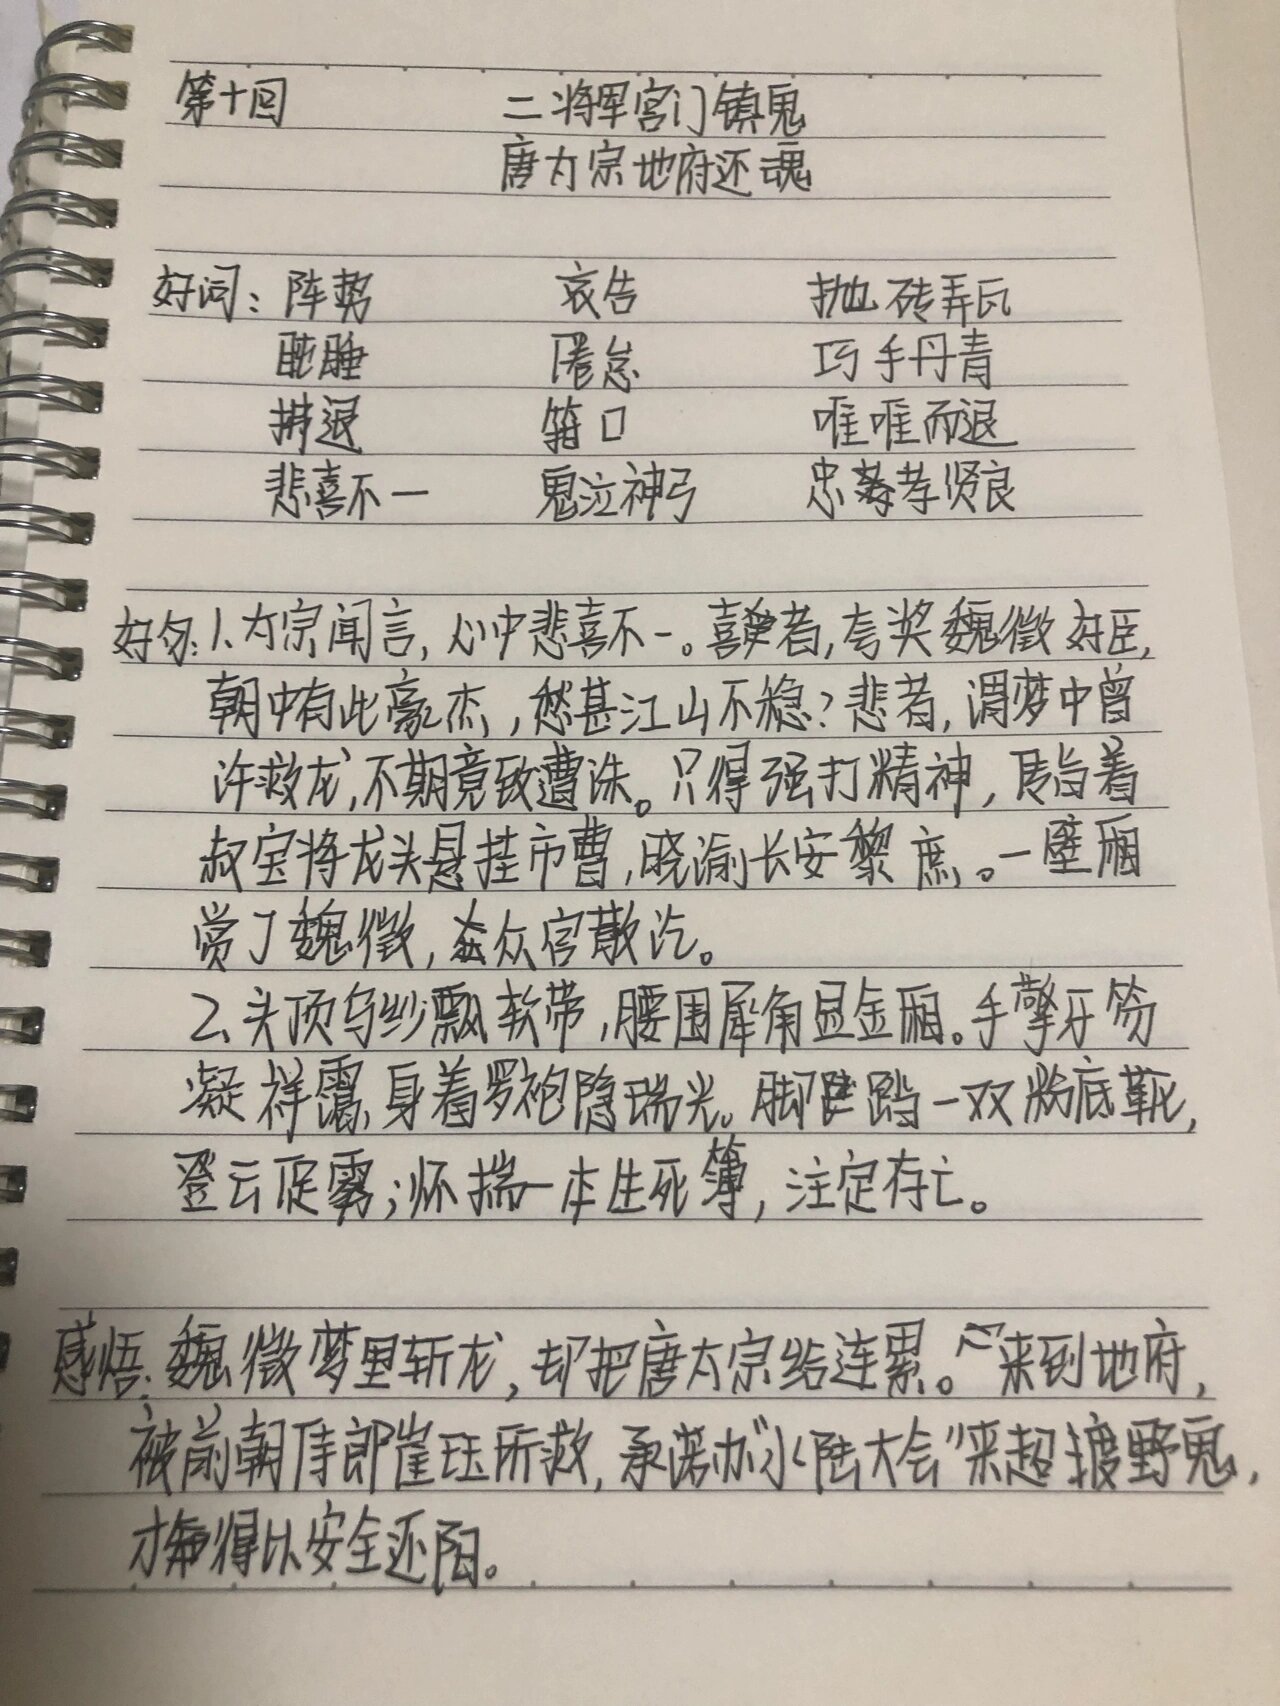 第十回 二将军宫门镇鬼
唐太宗地府还魂
好词：阵势 哀告 抛砖弄瓦
盹睡 倦怠 巧手丹青
拼退 箝口 唯唯而退
悲喜不一 鬼泣神弓 忠孝贤良
好句：1、太宗闻言，心中悲喜不一。喜者，夸奖魏徵好臣，
朝中有此豪杰，愁甚江山不稳？悲者，谓梦中曾
许救龙，不期竟致遭诛。只得强打精神，传旨着
叔宝将龙头悬挂市曹，晓谕长安黎庶。一壁厢
赏了魏徵，众官散讫。
2、头顶乌纱飘软带，腰围犀角显金厢。手擎牙笏
凝祥霭，身着罗袍隐瑞光。脚踏一双粉底靴，
登云促雾；怀揣一本生死簿，注定存亡。
感悟：魏徵梦里斩龙，却把唐太宗给连累。来到地府，
被前朝侍郎崔珏所救，承诺办“水陆大会”来超渡野鬼，
才得以安全还阳。